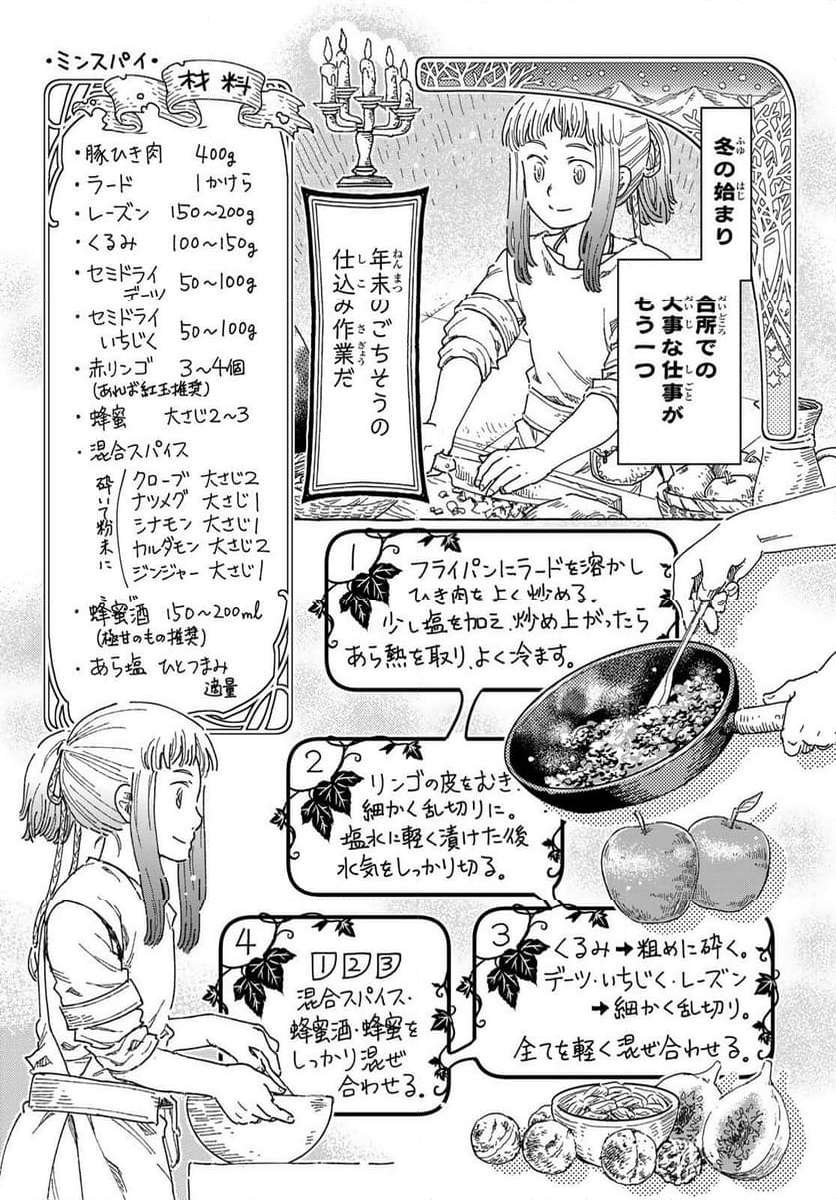 冬の始まり
台所での
大事な仕事が
もう一つ
年末のごちそうの
仕込み作業だ
・ミンスパイ・
材料
・豚ひき肉 400g
・ラード 1かけら
・レーズン 150〜200g
・くるみ 100〜150g
・セミドライデーツ 50〜100g
・セミドライいちじく 50〜100g
・赤リンゴ 3〜4個
(あれば紅玉推奨)
・蜂蜜 大さじ2〜3
・混合スパイス
砕いて粉末に
クローブ 大さじ2
ナツメグ 大さじ1
シナモン 大さじ1
カルダモン 大さじ2
ジンジャー 大さじ1
・蜂蜜酒 150〜200ml
(極甘のもの推奨)
・あら塩 ひとつまみ
適量
1
フライパンにラードを溶かし
ひき肉をよく炒める。
少し塩を加え、炒め上がったら
あら熱を取り、よく冷ます。
2
リンゴの皮をむき、
細かく乱切りに。
塩水に軽く漬けた後
水気をしっかり切る。
3
くるみ→粗めに砕く。
デーツ・いちじく・レーズン
→細かく乱切り。
全てを軽く混ぜ合わせる。
4
1 2 3
混合スパイス・
蜂蜜酒・蜂蜜を
しっかり混ぜ
合わせる。